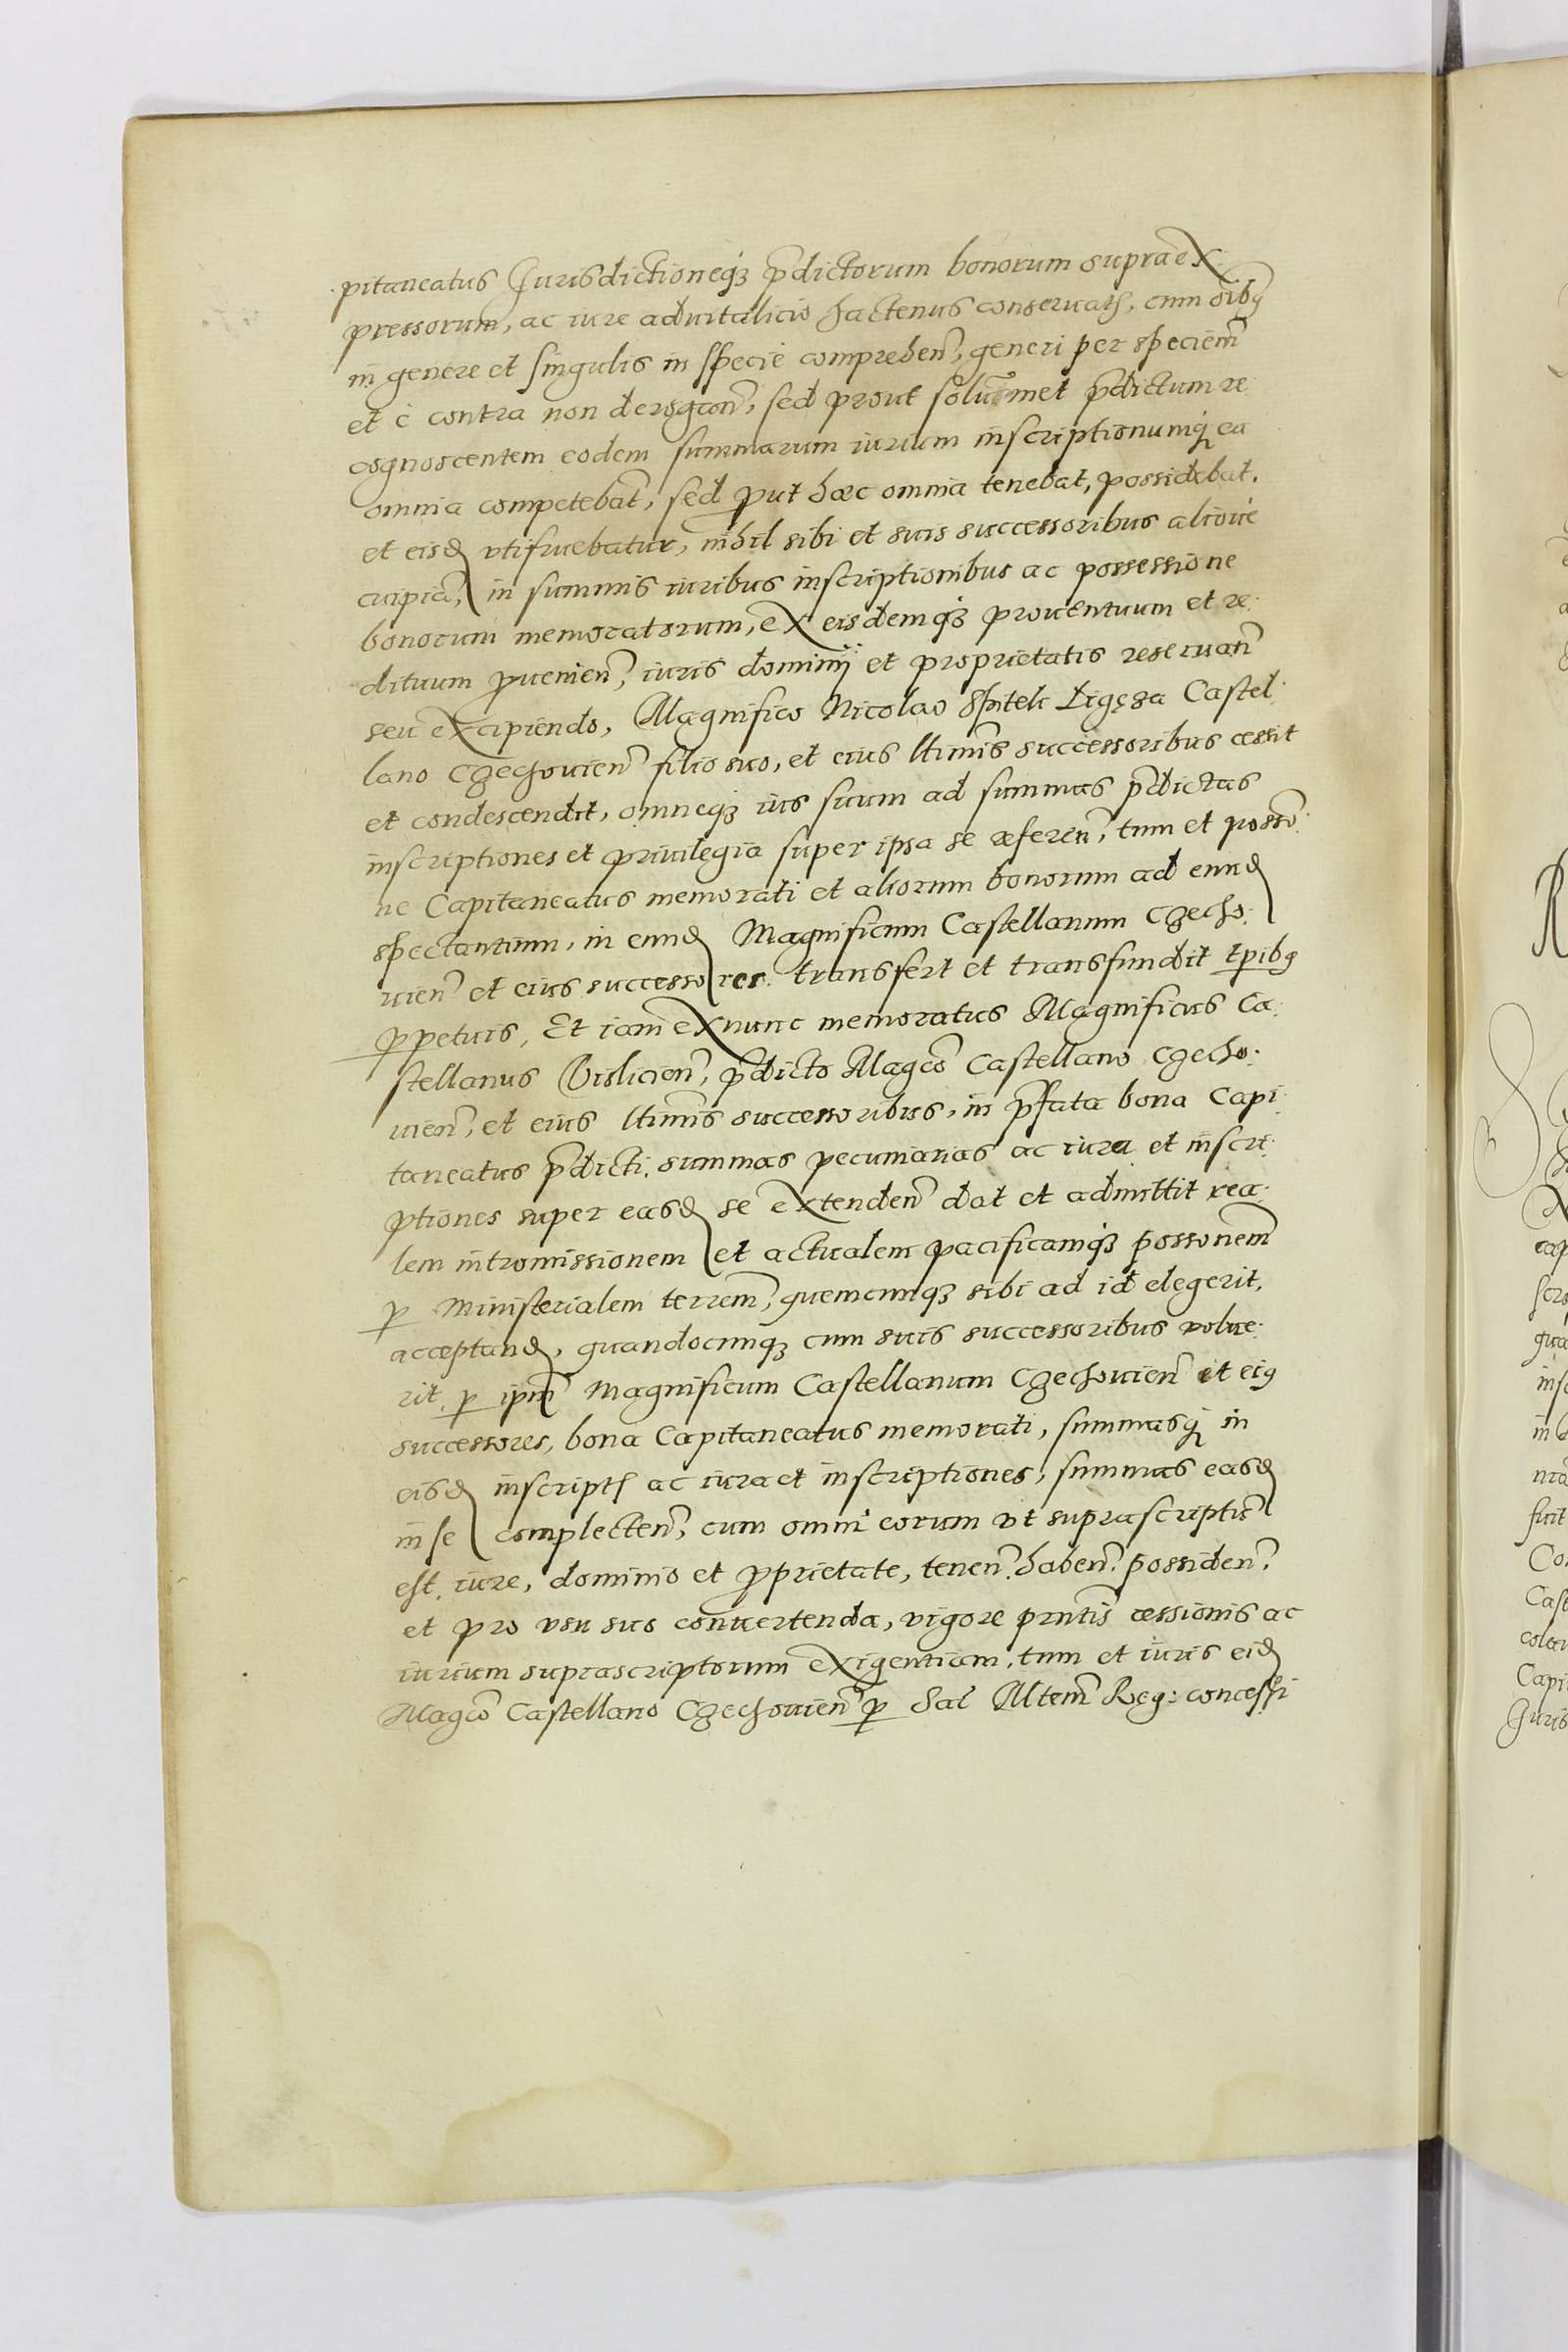 pitaneatus Jurisdictioneqʒ p̄dictorum bonorum supraex.
pressorum, ac iure aduitalicio hactenus conseruat, cum oīb9
in genere et singulis in specie comprehen̄, generi per speciem
et è contra non derogan̄, sed prout solummet p̄dictum re
cognoscentem eodem summarum iurium inscriptionumqʒ ea
omnia competebāt, sed put hæc omnia tenebat, possidebat.
et eisd vtifruebatur, nihil sibi et suis successoribus aliouè
cuipiā, in summis iuribus inscriptionibus ac possessione
bonorum memoratorum, ex eisdemqʒ prouentuum et re.
dituum puenien̄, iuris dominij et proprietatis reseruan̄
seu excipiendo, Magnifico Nicolao Spitek Ligęza Castel.
lano Czechouien̄ filio suo, et eius ltimis successoribus cessit
et condescendit, omneqʒ ius suum ad summas p̄dictas
inscriptiones et priuilegia super ipsa se referen̄, tum et posso.
ne Capitaneatus memorati et aliorum bonorum ad eund
spectantium, in eund Magnificum Castellanum Czecho.
uien̄ et eius successores. transfert et transfundit tpib9
ppetuis, Et iam ex nunc memoratus Magnificus Ca.
stellanus Vislicien̄, p̄dicto Magco Castellano Czecho.
uien̄, et eius ltimis successoribus, in p̄fata bona Capi.
taneatus p̄dicti. summas pecuniarias ac iura et inscri.
ptiones super easd se extenden̄ dat et admittit rea.
lem intromissionem et actualem pacificamqʒ possonem
p Ministerialem terrem̄, quemcunqʒ sibi ad id elegerit,
acceptand, quandocunqʒ cum suis successoribus volue.
rit, p ipm̄ Magnificum Castellanum Czechouien̄ et ei9
successores, bona Capitaneatus memorati, summasqʒ in
eisd inscript ac iura et inscriptiones, summas easd
in se complecten̄, cum omni eorum vt suprascriptū
est, iure, dominio et pprietate, tenen̄. haben̄. possiden̄.
et pro vsu suo conuertenda, vigore prntis cessionis ac
iurium suprascriptorum exigentiam. tum et iuris eid
Magco Castellano Czechouien̄ p Sac Mtem̄ Reg: concessi